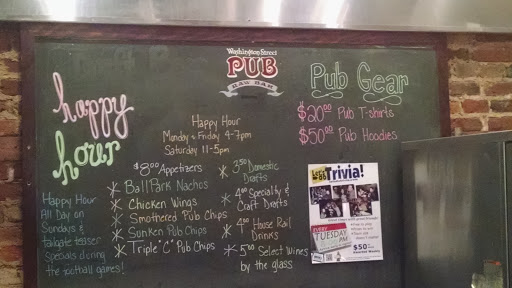 Washington Street
PUB
RAW BAR
happy
hour
Happy Hour
Monday - Friday 4-7pm
Saturday 11-5pm
$8.00 Appetizers
* Ball Park Nachos
* Chicken Wings
* Smothered Pub Chips
* Sunken Pub Chips
* Triple "C" Pub Chips
* 3.50 Domestic
Drafts
* 4.00 Specialty &
Craft Drafts
* 4.00 House Rail
Drinks
* 5.00 Select Wines
by the glass
Happy Hour
All Day on
Sundays &
tailgate teaser
specials during
the football games!
Pub Gear
$20.00 Pub T-shirts
$50.00 Pub Hoodies
Trivia!
EVERY
TUESDAY
PM
$50